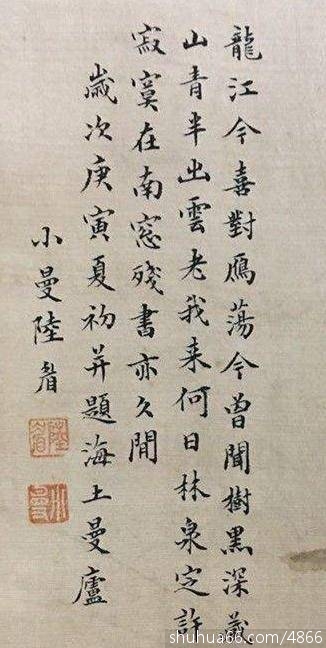 龍江今喜對鴈蕩今曾聞樹黒深藏
山青半出雲老我来何日林泉定許
寂寞在南窓殘書亦久閒
歲次庚寅夏初并題海上曼廬
小曼陸眉
陸眉
小曼
shuhua66.com/4866